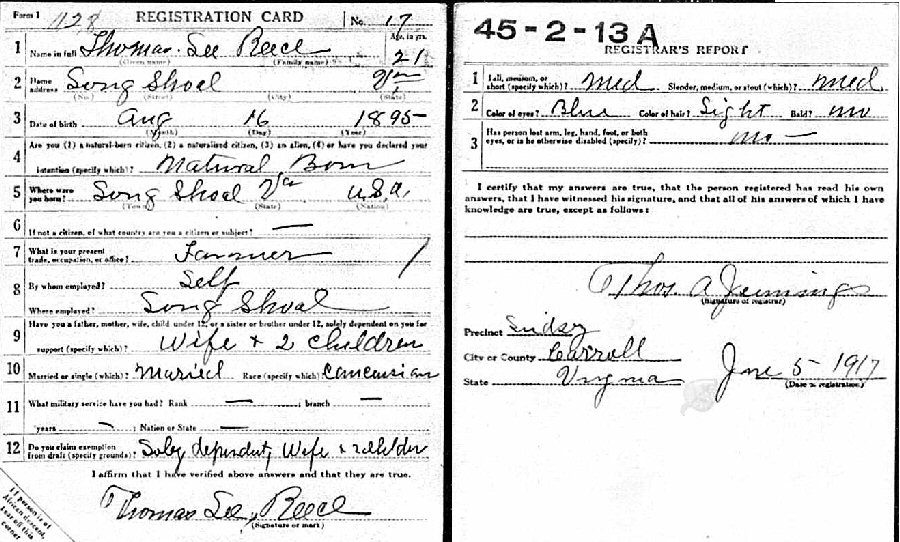 Form 1 128 REGISTRATION CARD No. 17
1 Name in full Thomas Lee Reece Age, in yrs. 21
(Given name) (Family name)
2 Home address Long Shoal Va
(No.) (Street) (City) (State)
3 Date of birth Aug 16 1895
(Month) (Day) (Year)
Are you (1) a natural-born citizen, (2) a naturalized citizen, (3) an alien, (4) or have you declared your
4 intention (specify which)? Natural Born
5 Where were you born? Long Shoal Va U.S.A.
(Town) (State) (Nation)
6 If not a citizen, of what country are you a citizen or subject? —
7 What is your present trade, occupation, or office? Farmer
8 By whom employed? Self
Where employed? Long Shoal
9 Have you a father, mother, wife, child under 12, or a sister or brother under 12, solely dependent on you for
support (specify which)? Wife + 2 children
10 Married or single (which)? Maried Race (specify which)? Caucasian
11 What military service have you had? Rank — ; branch —
years — ; Nation or State —
12 Do you claim exemption from draft (specify grounds)? Soley dependent, Wife +
I affirm that I have verified above answers and that they are true.
Thomas Lee, Reece
(Signature or mark)
If person is of African descent, tear off this corner
45-2-13 A
REGISTRAR'S REPORT
1 Tall, medium, or short (specify which)? Med Slender, medium, or stout (which)? Med
2 Color of eyes? Blue Color of hair? Light Bald? no
3 Has person lost arm, leg, hand, foot, or both eyes, or is he otherwise disabled (specify)? no —
I certify that my answers are true, that the person registered has read his own
answers, that I have witnessed his signature, and that all of his answers of which I have
knowledge are true, except as follows:
Thos. A Jennings
(Signature of registrar)
Precinct
City or County Carroll
State Virginia June 5 - 1917
(Date of registration)